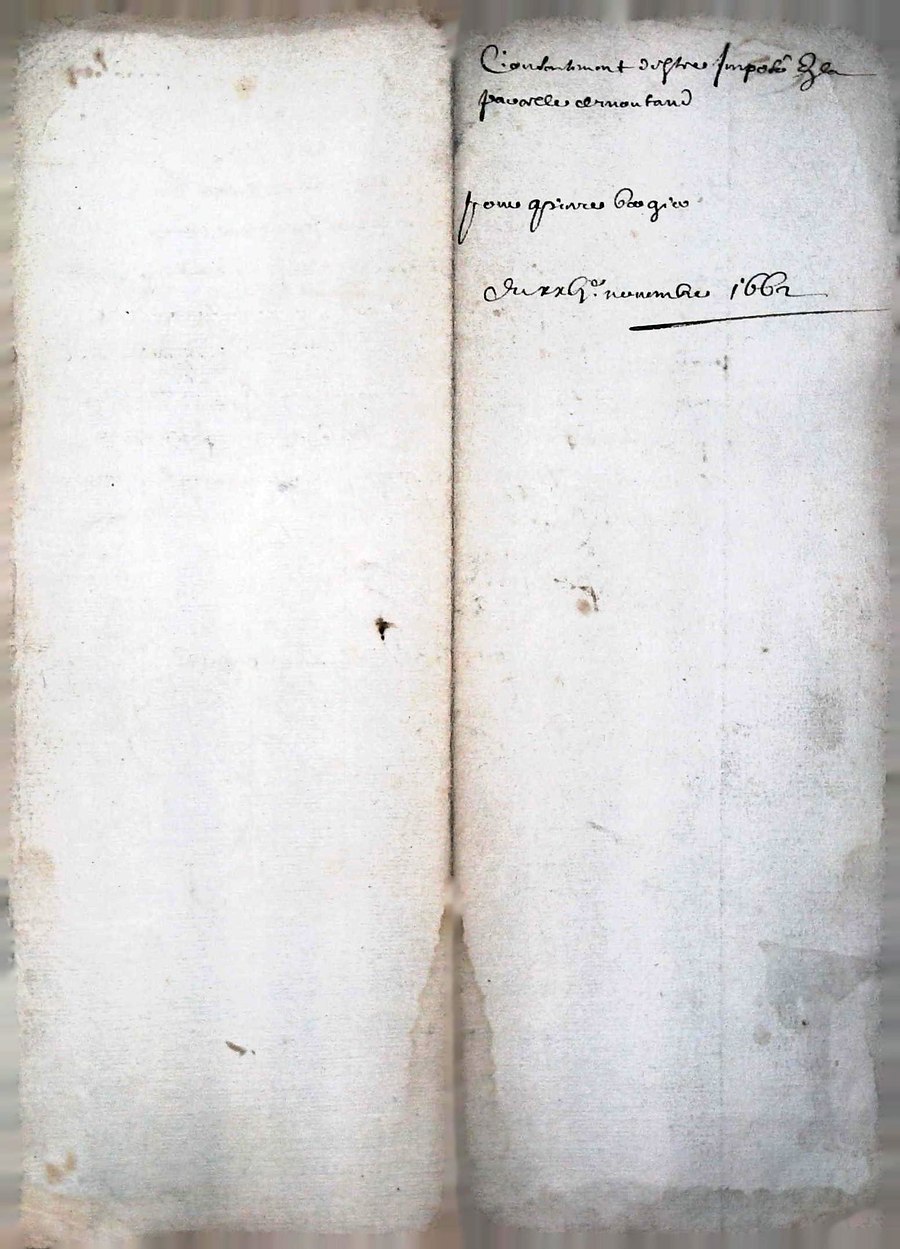 Consentement destre Imposé En la
parcelle ermontaud
pour pierre
du xx novembre 1662